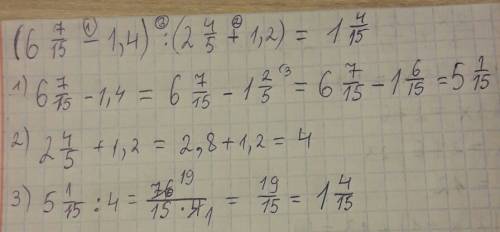 (6 7/15 - 1,4) : (2 4/5 + 1,2) = 1 4/15
1) 6 7/15 - 1,4 = 6 7/15 - 1 2/5 = 6 7/15 - 1 6/15 = 5 1/15
2) 2 4/5 + 1,2 = 2,8 + 1,2 = 4
3) 5 1/15 : 4 = 76 19/15 · 4 1 = 19/15 = 1 4/15